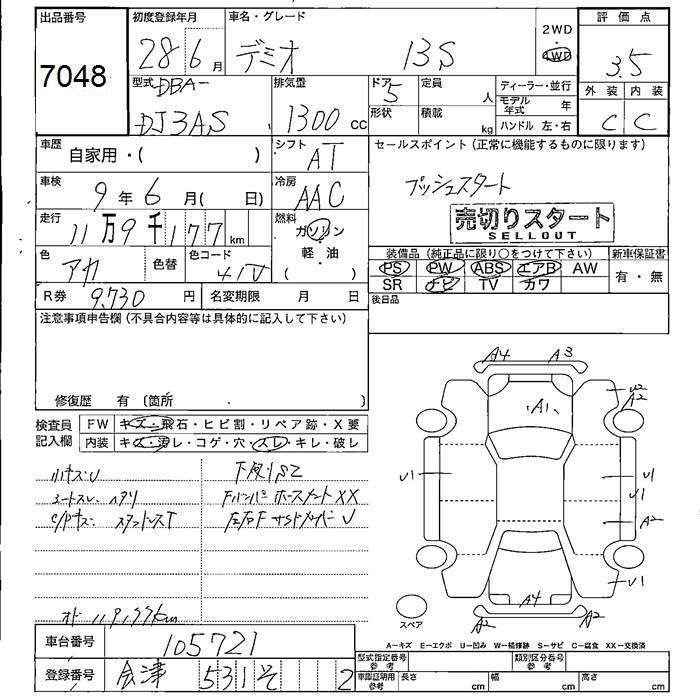 出品番号 初度登録年月 車名・グレード 2WD 評価点
7048 28 6月 デミオ 13S 4WD 3.5
型式 DBA- 排気量 ドア 5 定員 人 ディーラー・並行 外装 内装
DJ3AS 1300 cc 形状 積載 kg モデル年式 年 C C
ハンドル 左・右
車歴 自家用・( ) シフト AT セールスポイント(正常に機能するものに限ります)
車検 9年 6月( 日) 冷房 AAC プッシュスタート
走行 11万9千177km 燃料 ガソリン・軽・油 ( ) 売切りスタート
SELLOUT
色 アカ 色替 色コード 41V 装備品(純正品に限り○をつけて下さい) 新車保証書
PS PW ABS エアB AW 有・無
SR ナビ TV カワ
R券 9,730円 名変期限 月 日 後日品
注意事項申告欄(不具合内容等は具体的に記入して下さい)
修復歴 有(箇所 )
A4 A3
A1 U2
A2
検査員記入欄 FW キズ・飛石・ヒビ割・リペア跡・X要
内装 キズ・汚レ・コゲ・穴・スレ・キレ・破レ
U1 U1
U1
A2
U1
A4
A2 A2
ハナズレ 下廻りS2
シートスレ、ヘタリ FバンパーホースメントXX
左右FサイドメンバーU
オド 119,177km
スペア
A-キズ E-エクボ U-凹み W-補修跡 S-サビ C-腐食 XX-交換済
車台番号 105721
登録番号 会津 531 そ 2
型式指定番号 参考 類別区分番号 参考
車庫証明用 参考 長さ cm 幅 cm 高さ cm